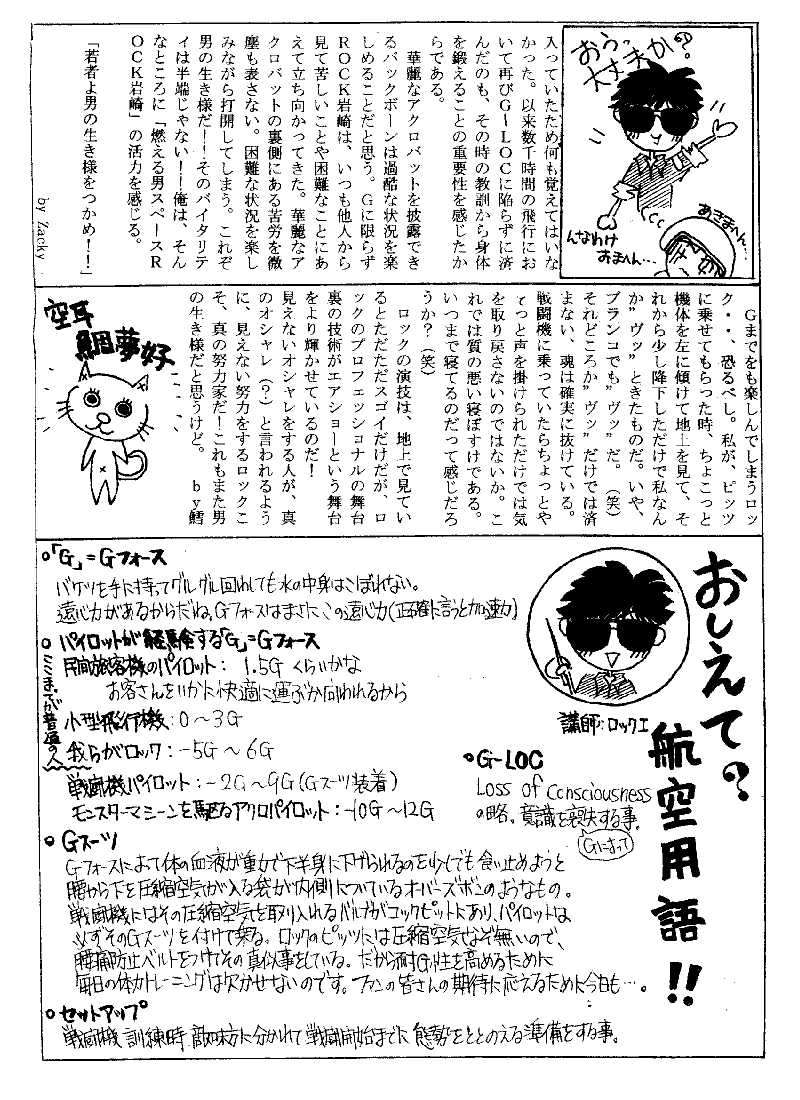 おうっ
大丈夫か？
あきまへん…
んなわけ
おまへん…
入っていたため何も覚えてはいな
かった。以来数千時間の飛行にお
いて再びG-LOCに陥らずに済
んだのも、その時の教訓から身体
を鍛えることの重要性を感じたか
らである。
華麗なアクロバットを披露でき
るバックボーンは過酷な状況を楽
しめることだと思う。Gに限らず
ROCK岩崎は、いつも他人から
見て苦しいことや困難なことにあ
えて立ち向かってきた。華麗なア
クロバットの裏側にある苦労を微
塵も表さない。困難な状況を楽し
みながら打開してしまう。これぞ
男の生き様だ！！そのバイタリテ
イは半端じゃない！！俺は、そん
なところに「燃える男スペースR
OCK岩崎」の活力を感じる。
「若者よ男の生き様をつかめ！！」
by Zacky
Gまでをも楽しんでしまうロッ
ク・・、恐るべし。私が、ピッツ
に乗せてもらった時、ちょこっと
機体を左に傾けて地上を見て、そ
れから少し降下しただけで私なん
か”ヴッ”ときたものだ。いや、
ブランコでも”ヴッ”だ。（笑）
それどころか”ヴッ”だけでは済
まない、魂は確実に抜けている。
戦闘機に乗っていたらちょっとや
そっと声を掛けられただけでは気
を取り戻さないのではないか。こ
れでは質の悪い寝ぼすけである。
いつまで寝てるのだって感じだろ
うか？（笑）
ロックの演技は、地上で見てい
るとただただスゴイだけだが、ロ
ックのプロフェッショナルの舞台
裏の技術がエアショーという舞台
をより輝かせているのだ！
見えないオシャレをする人が、真
のオシャレ（？）と言われるよう
に、見えない努力をするロックこ
そ、真の努力家だ！これもまた男
の生き様だと思うけど。 by鱈
空耳
鯛夢好
おしえて？
航空用語！！
講師：ロックI
○「G」＝Gフォース
バケツを手に持ってグルグル回わしても水の中身はこぼれない。
遠心力があるからだね。Gフォースはまさにこの遠心力（正確に言うと加速力）
○パイロットが経験する「G」＝Gフォース
民間旅客機のパイロット： 1.5Gくらいかな
お客さんをいかに快適に運ぶか問われるから
小型飛行機：0〜3G
ここまでが普通の人
我らがロック：−5G〜6G
戦闘機パイロット：−2G〜9G（Gスーツ装着）
モンスターマシーンを駆るアクロパイロット：−10G〜12G
○G-LOC
Loss of Consciousness
の略。意識を喪失する事。
Gによって
○Gスーツ
Gフォースによって体の血液が重力で下半身に下げられるのを少しでも食い止めようと
腰から下を圧縮空気が入る袋が内側についているオーバーズボンのようなもの。
戦闘機にはその圧縮空気を取り入れるバルブがコックピットにあり、パイロットは
必ずそのGスーツを付けて乗る。ロックのピッツには圧縮空気なぞ無いので、
腰痛防止ベルトをつけてその真似事をしている。だから耐G性を高めるために
毎日の体力トレーニングは欠かせないのです。ファンの皆さんの期待に応えるために今日も…。
○セットアップ
戦闘機訓練時敵味方に分かれて戦闘開始までに態勢をととのえる準備をする事。